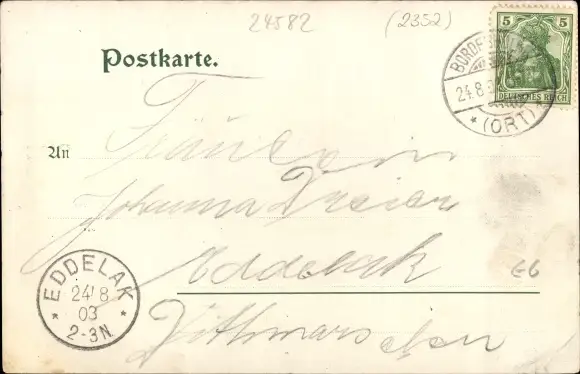 24582 (2352)
Postkarte.
5 5
DEUTSCHES REICH
BORDE
24.8.
* (ORT) *
An
Fräulein
Johanna Dreier
Eddelack
E6
Dithmarschen
* EDDELAK *
24 8
03
2-3N.